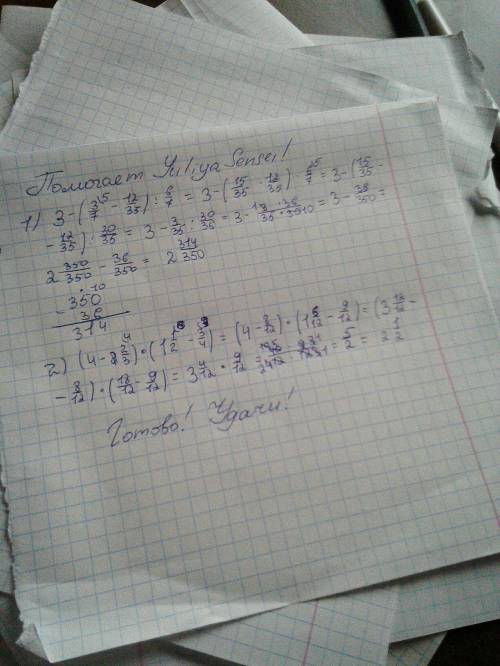 Помогает Yuliya Sensei!
1) 3-(3/7 - 12/35) : 6/7 = 3-(15/35 - 12/35) : 6/7 = 3-(15/35 -
- 12/35) : 30/35 = 3 - 3/35 : 30/35 =
2 350/350 - 36/350 = 2 314/350
- 350
36
314
2) (4 - 2/3) · (1 1/2 - 3/4) = (4 - 8/12) · (1 6/12 - 9/12) = (3 12/12 -
- 8/12) · (18/12 - 9/12) = 3 4/12 · 9/12 = 5/2 = 2 1/2
Готово! Удачи!